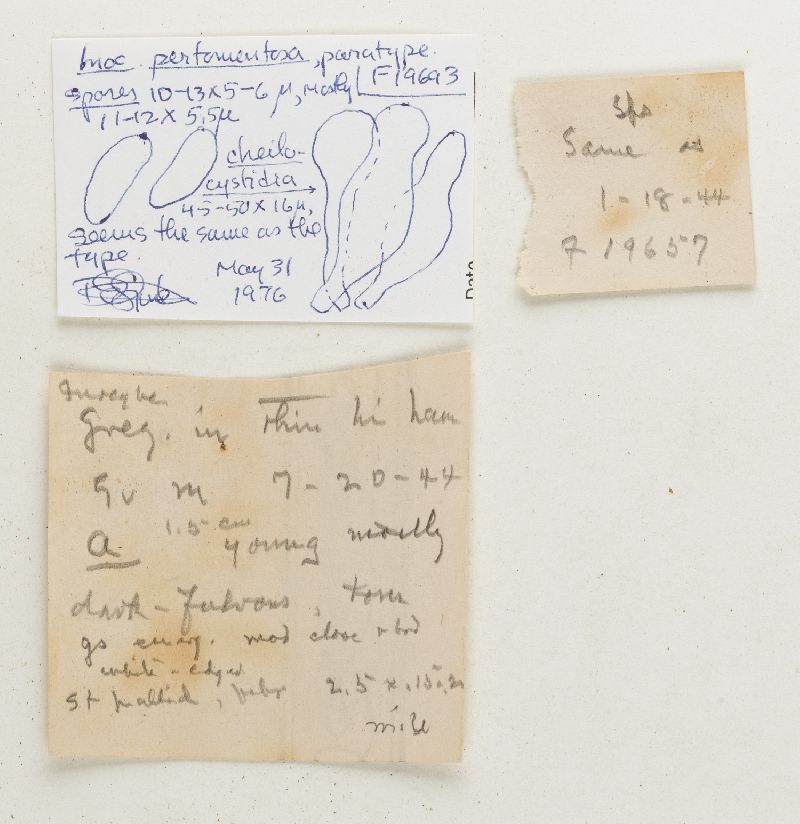 Inoc. pertomentosa, paratype.
F19693
spores 10-13 x 5-6 µ, mostly
11-12 x 5.5µ
cheilo-
cystidia
45-50 x 16µ,
seems the same as the
type.
May 31
1976
Data
Sps
Same as
1-18-44
F 19657
Greg. in thin hi ham
Gv m 7-20-44
a 1.5 cm young mostly
dark-fulvous, tom
gs emarg. mod close + brd
white-edged
st pallid, 2.5 x .15-.2
mild